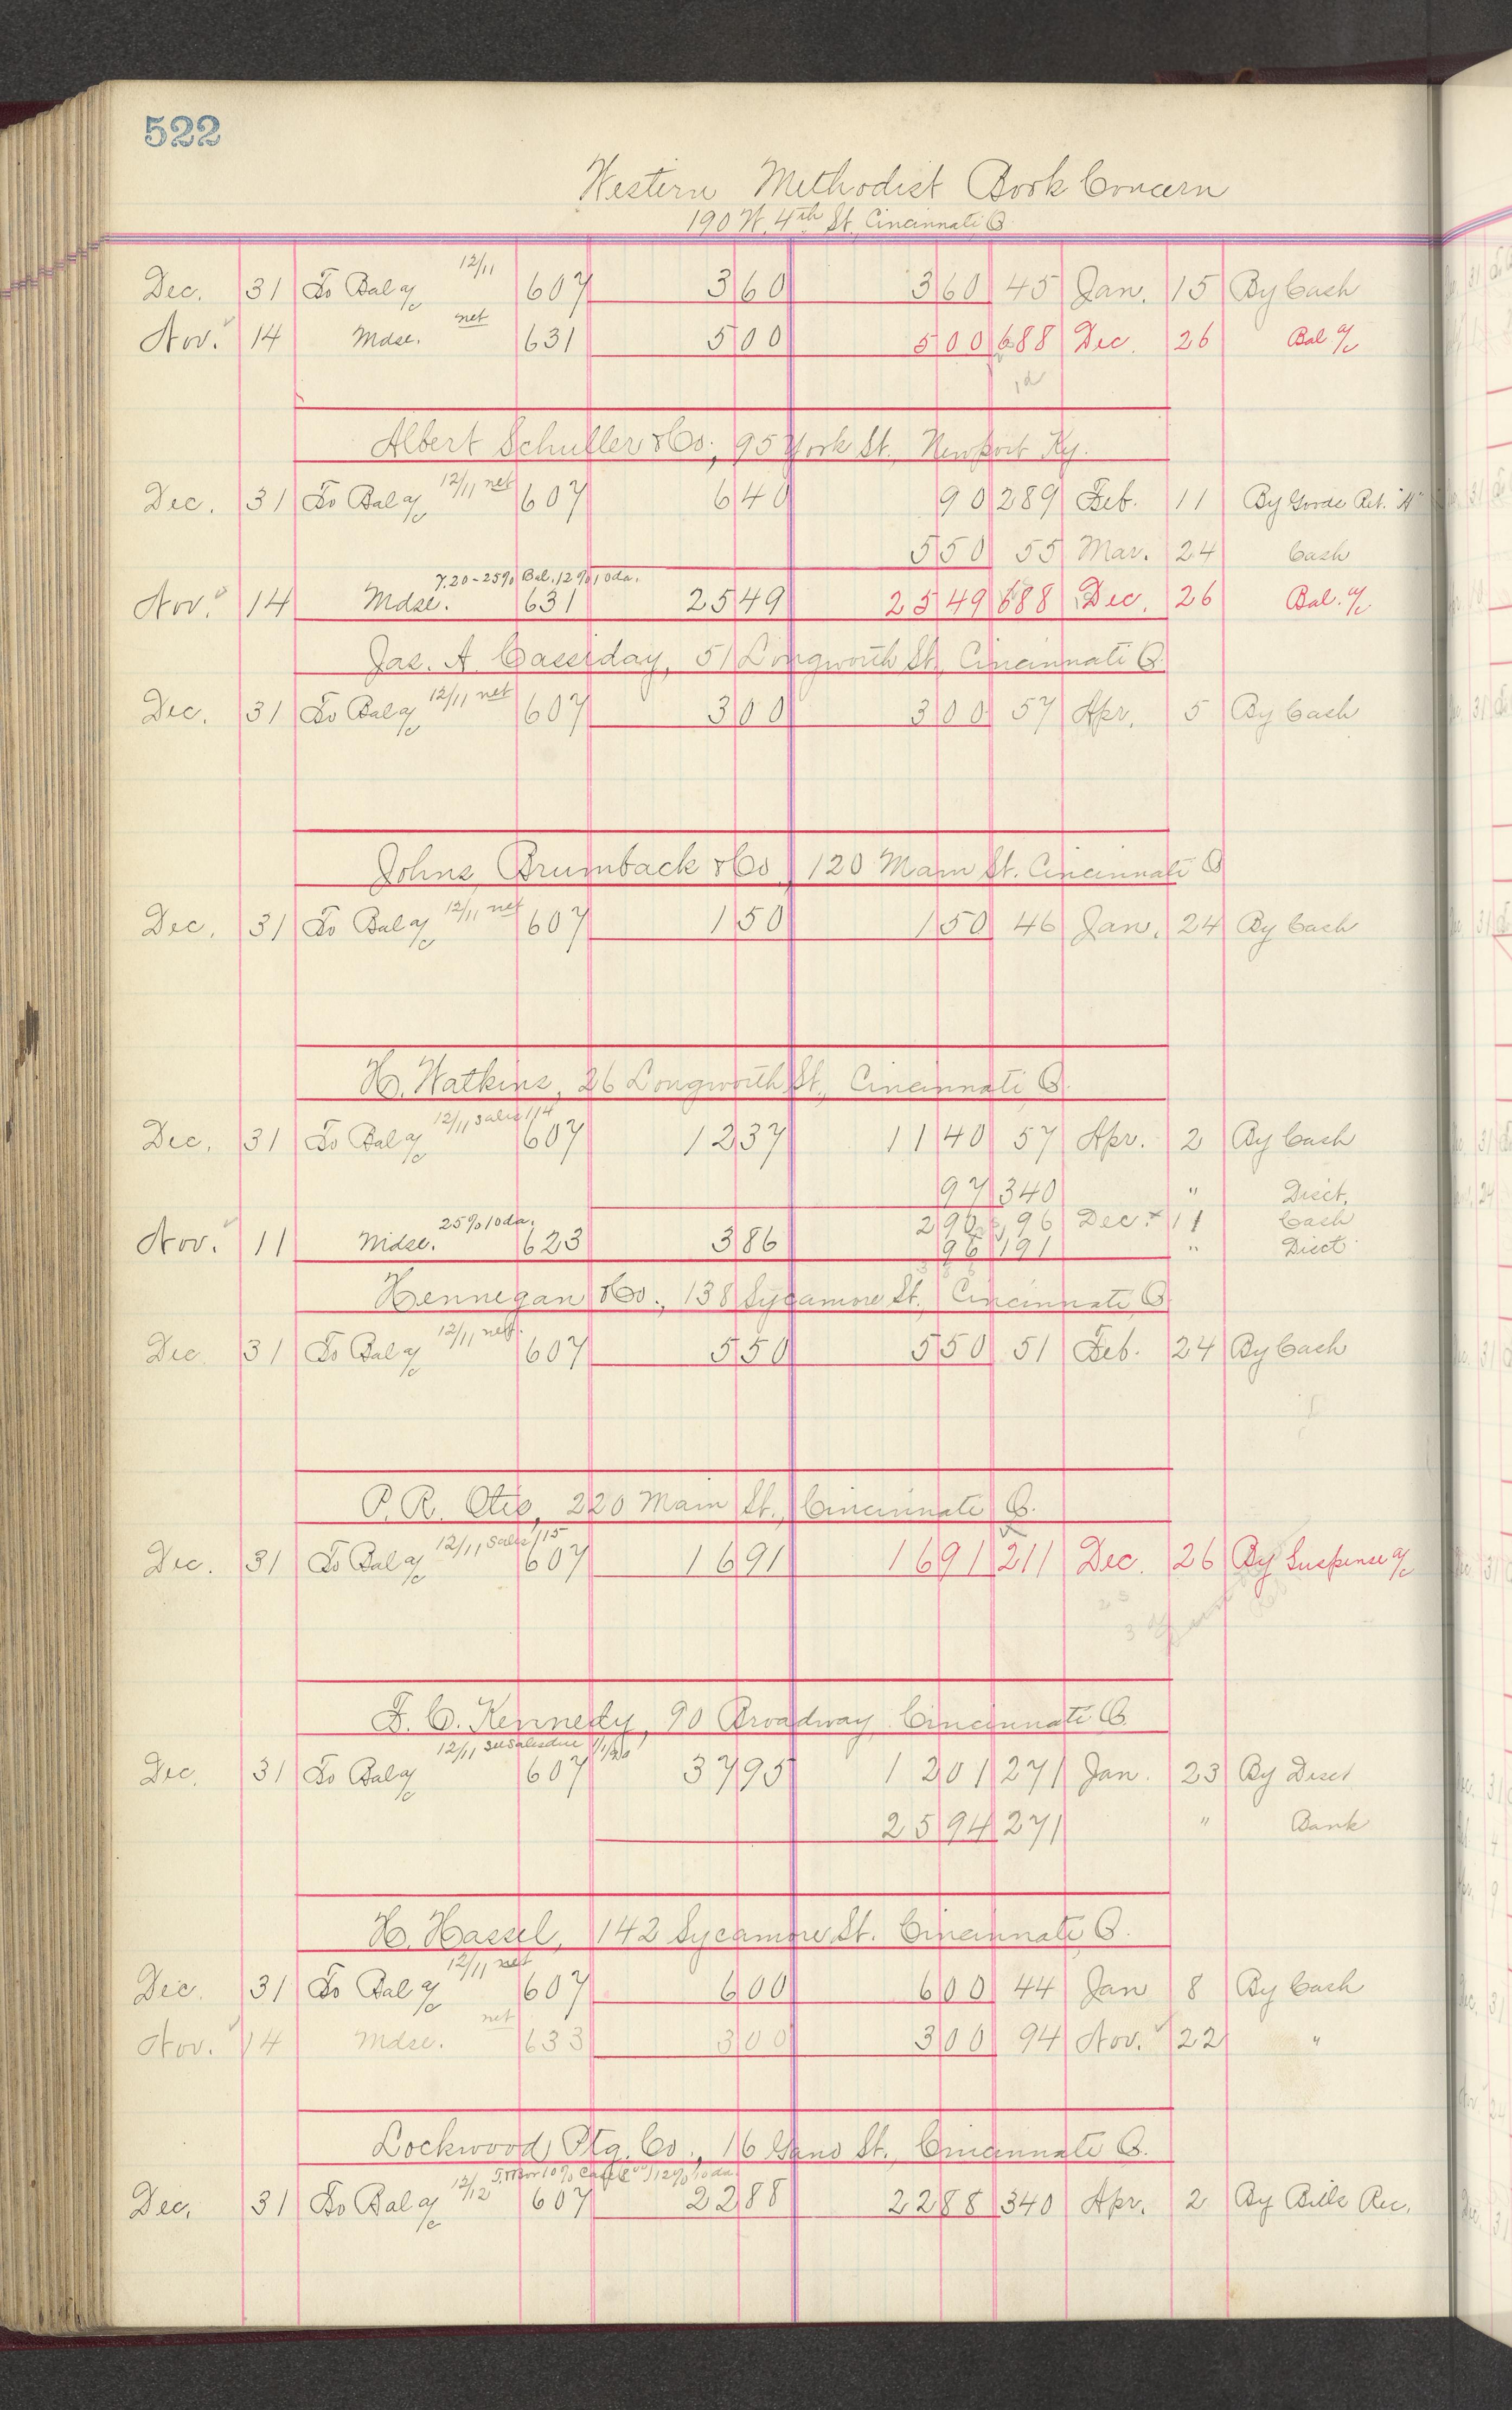 522
Western Methodist Book Concern
190 W. 4th St. Cincinnati O
12/11
Dec. 31 To Bal a/c 607 360 360 45 Jan. 15 By Cash
net
Nov. 14 Mdse. 631 500 500 688 Dec. 26 Bal a/c
Albert Schuller & Co., 95 York St., Newport Ky.
12/11 net
Dec. 31 To Bal a/c 607 640 90 289 Feb. 11 By Goods Ret.
550 55 Mar. 24 Cash
7.20-25% Bal. 12% 10 da.
Nov. 14 Mdse. 631 2549 2549 688 Dec. 26 Bal. a/c
Jas. A. Cassiday, 51 Longworth St, Cincinnati O.
12/11 net
Dec. 31 To Bal a/c 607 300 300 57 Apr. 5 By Cash
Johns, Brumback & Co., 120 Main St. Cincinnati O
12/11 net
Dec. 31 To Bal a/c 607 150 150 46 Jan. 24 By Cash
H. Watkins, 26 Longworth St., Cincinnati, O.
12/11 Sales 1/4
Dec. 31 To Bal a/c 607 1237 1140 57 Apr. 2 By Cash
97 340 " Disct.
25% 10 da. 290 96 Dec. 11 Cash
Nov. 11 Mdse. 623 386 96 191 " Disct
Hennegan & Co., 138 Sycamore St., Cincinnati O
12/11 net
Dec 31 To Bal a/c 607 550 550 51 Feb. 24 By Cash
P. R. Otis, 220 Main St., Cincinnati O.
12/11 Sales 1/15
Dec. 31 To Bal a/c 607 1691 1691 211 Dec. 26 By Suspense a/c
F. C. Kennedy, 90 Broadway Cincinnati O
12/11
Dec. 31 To Bal a/c 607 3795 1201 271 Jan. 23 By Disct
2594 271 " Bank
H. Hassel, 142 Sycamore St. Cincinnati O.
12/11 net
Dec. 31 To Bal a/c 607 600 600 44 Jan 8 By Cash
net
Nov. 14 Mdse. 633 300 300 94 Nov. 22 "
Lockwood Ptg. Co., 16 Gano St., Cincinnati O.
12/12 10% 12% 10 da.
Dec. 31 To Bal a/c 607 2288 2288 340 Apr. 2 By Bills Rec.